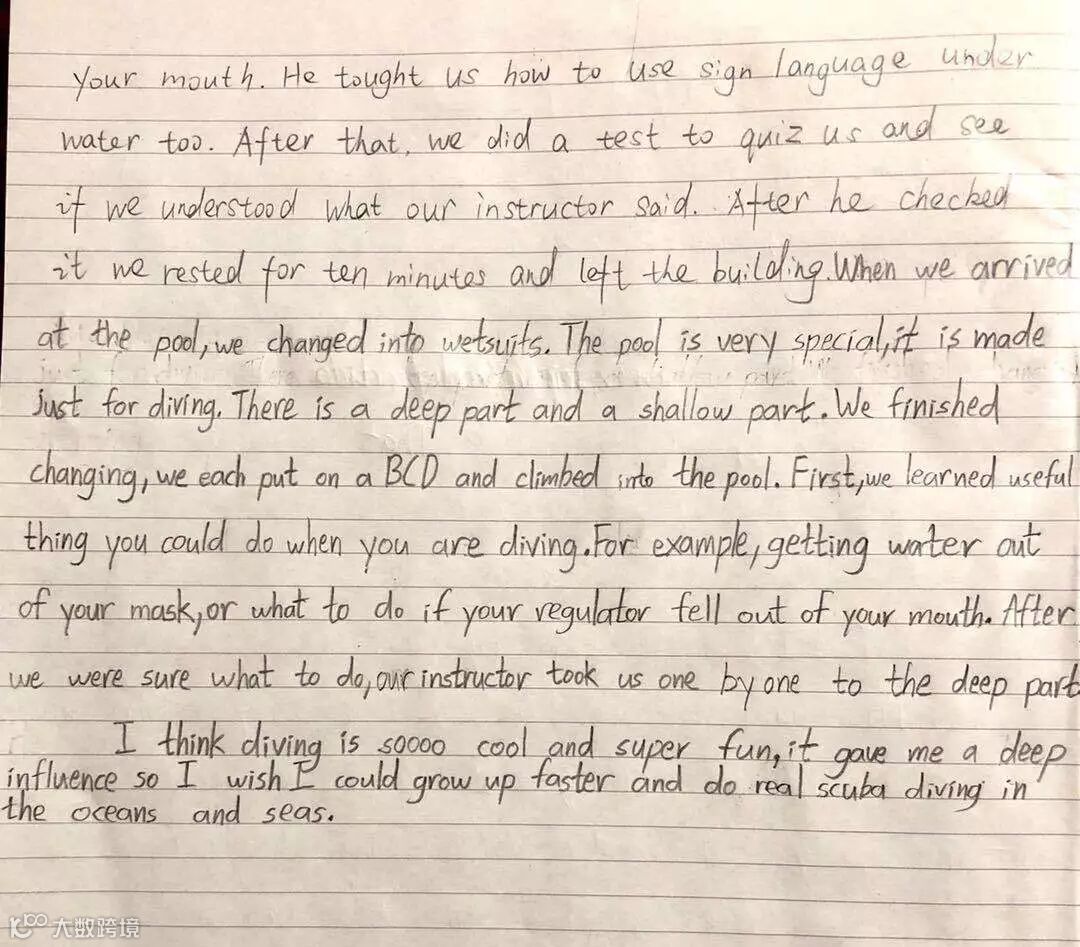 your mouth. He tought us how to use sign language under
water too. After that, we did a test to quiz us and see
if we understood what our instructor said. After he checked
it we rested for ten minutes and left the building. When we arrived
at the pool, we changed into wetsuits. The pool is very special, it is made
just for diving. There is a deep part and a shallow part. We finished
changing, we each put on a BCD and climbed into the pool. First, we learned useful
thing you could do when you are diving. For example, getting water out
of your mask, or what to do if your regulator fell out of your mouth. After
we were sure what to do, our instructor took us one by one to the deep part
I think diving is soooo cool and super fun, it gave me a deep
influence so I wish I could grow up faster and do real scuba diving in
the oceans and seas.
大数跨境